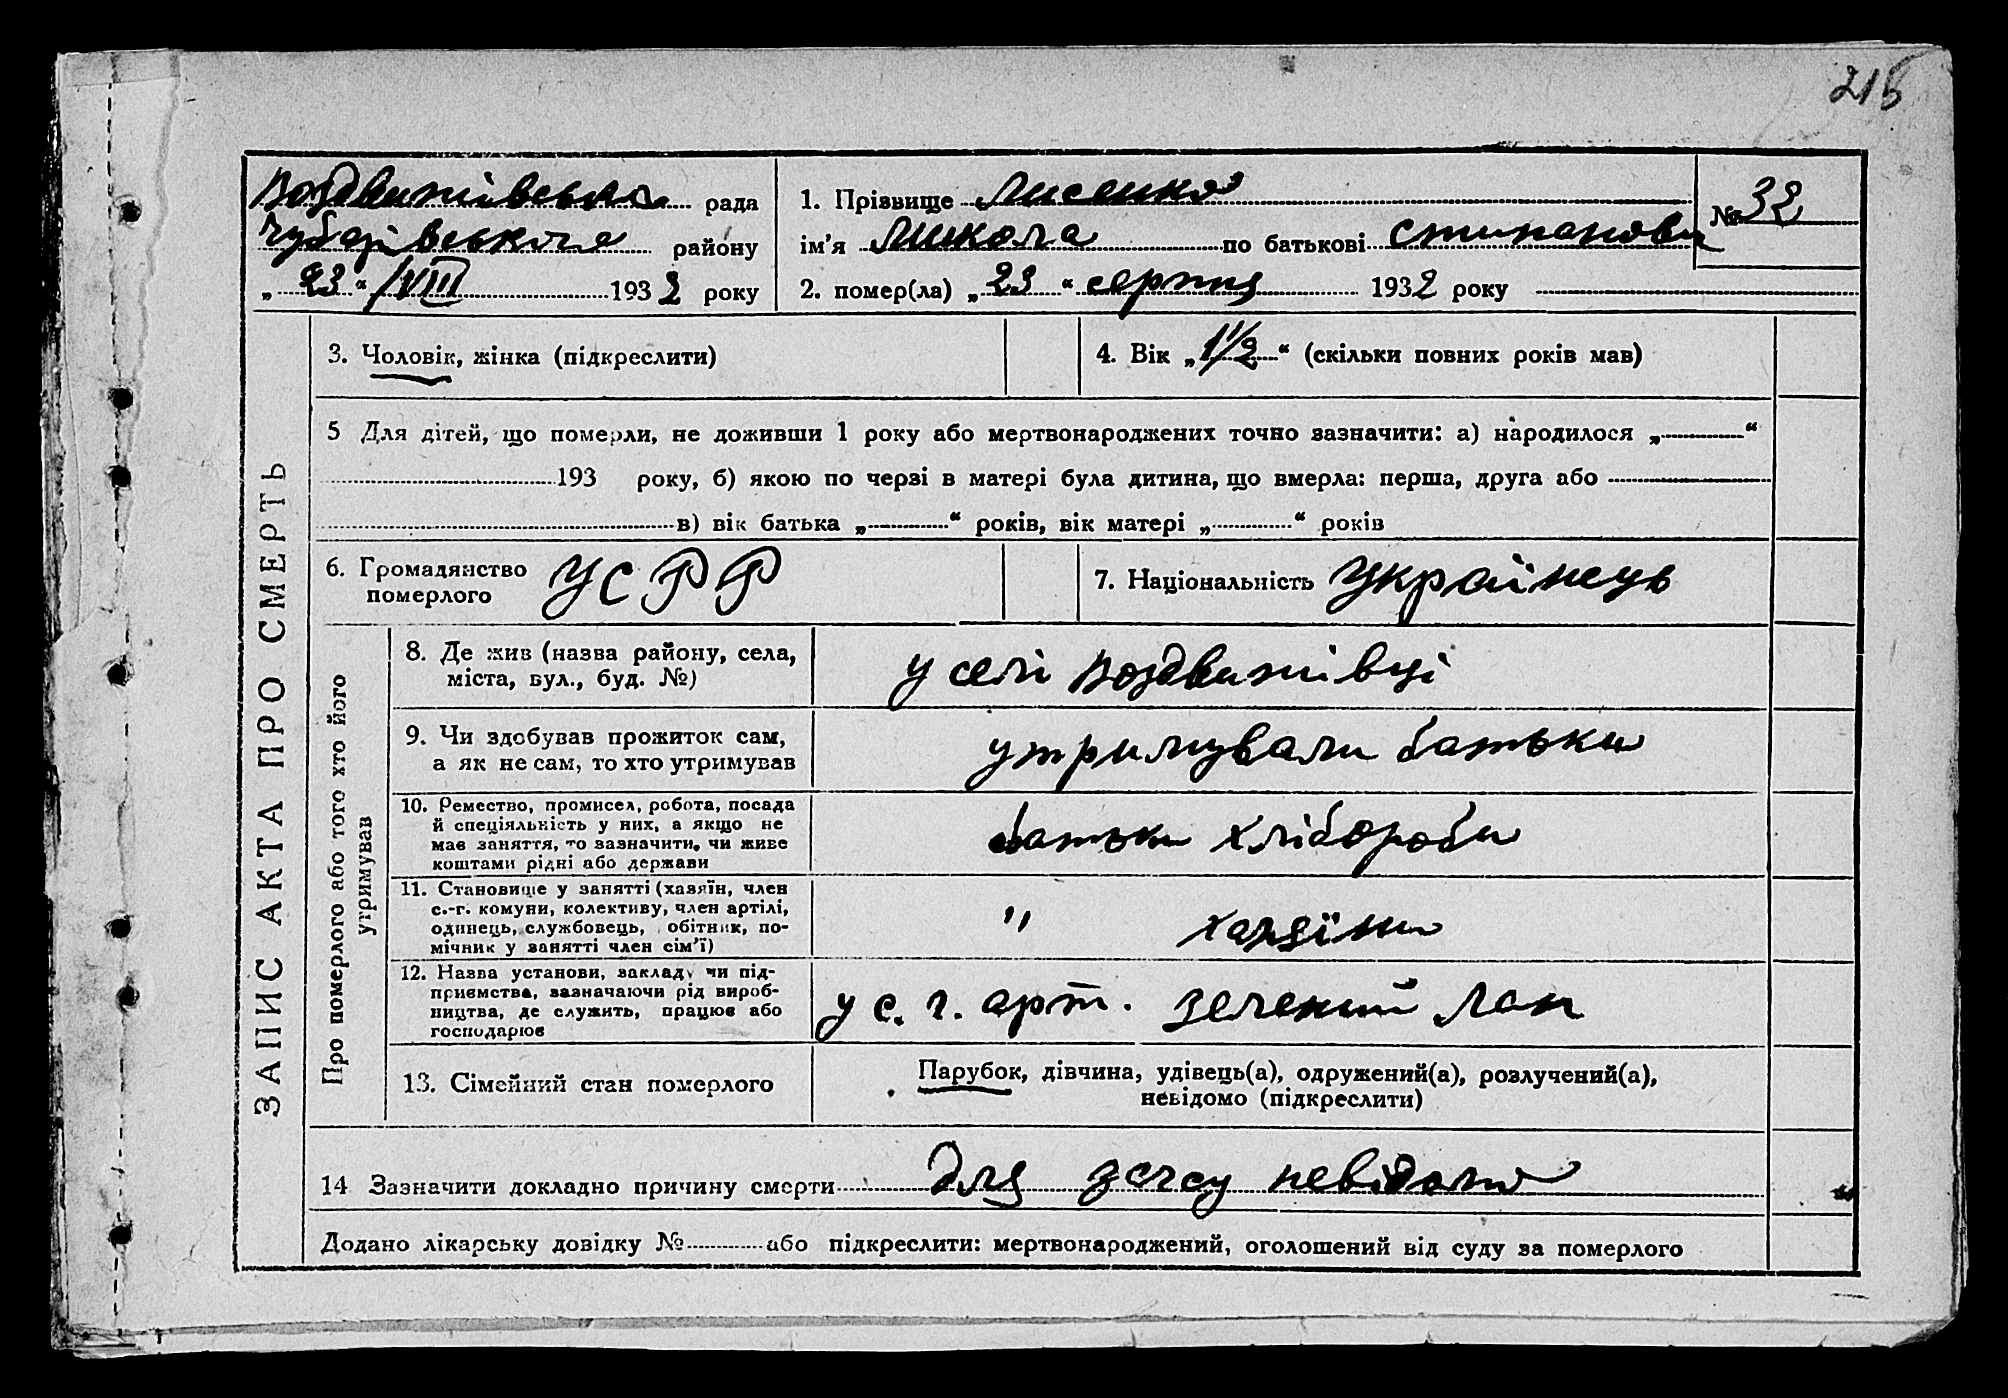 215
Воздвижівська рада
Чубарівського району
„ 23 “ /VIII 1932 року
1. Прізвище Лисенко
ім’я Микола по батькові Степанови
2. помер(ла) „ 23 “ серпня 1932 року
№ 32
ЗАПИС АКТА ПРО СМЕРТЬ
3. Чоловік, жінка (підкреслити)
4. Вік „ 1 1/2 “ (скільки повних років мав)
5 Для дітей, що померли, не доживши 1 року або мертвонароджених точно зазначити: а) народилося „ “
193 року, б) якою по черзі в матері була дитина, що вмерла: перша, друга або
в) вік батька „ “ років, вік матері „ “ років
6. Громадянство
померлого
УСРР
7. Національність Українець
Про померлого або того хто його
утримував
8. Де жив (назва району, села,
міста, вул., буд. №)
у селі Воздвижівці
9. Чи здобував прожиток сам,
а як не сам, то хто утримував
утримували батьки
10. Ремество, промисел, робота, посада
й спеціяльність у них, а якщо не
мав заняття, то зазначити, чи живе
коштами рідні або держави
батьки хлібороби
11. Становище у занятті (хазяїн, член
с.-г. комуни, колективу, член артілі,
одинець, службовець, обітник, по-
мічник у занятті член сім’ї)
" хазяїни
12. Назва установи, закладу чи під-
приємства, зазначаючи рід вироб-
ництва, де служить, працює або
господарює
у с. г. арт. зелений лан
13. Сімейний стан померлого
Парубок, дівчина, удівець(а), одружений(а), розлучений(а),
невідомо (підкреслити)
14 Зазначити докладно причину смерти Для загсу невідомо
Додано лікарську довідку № або підкреслити: мертвонароджений, оголошений від суду за померлого